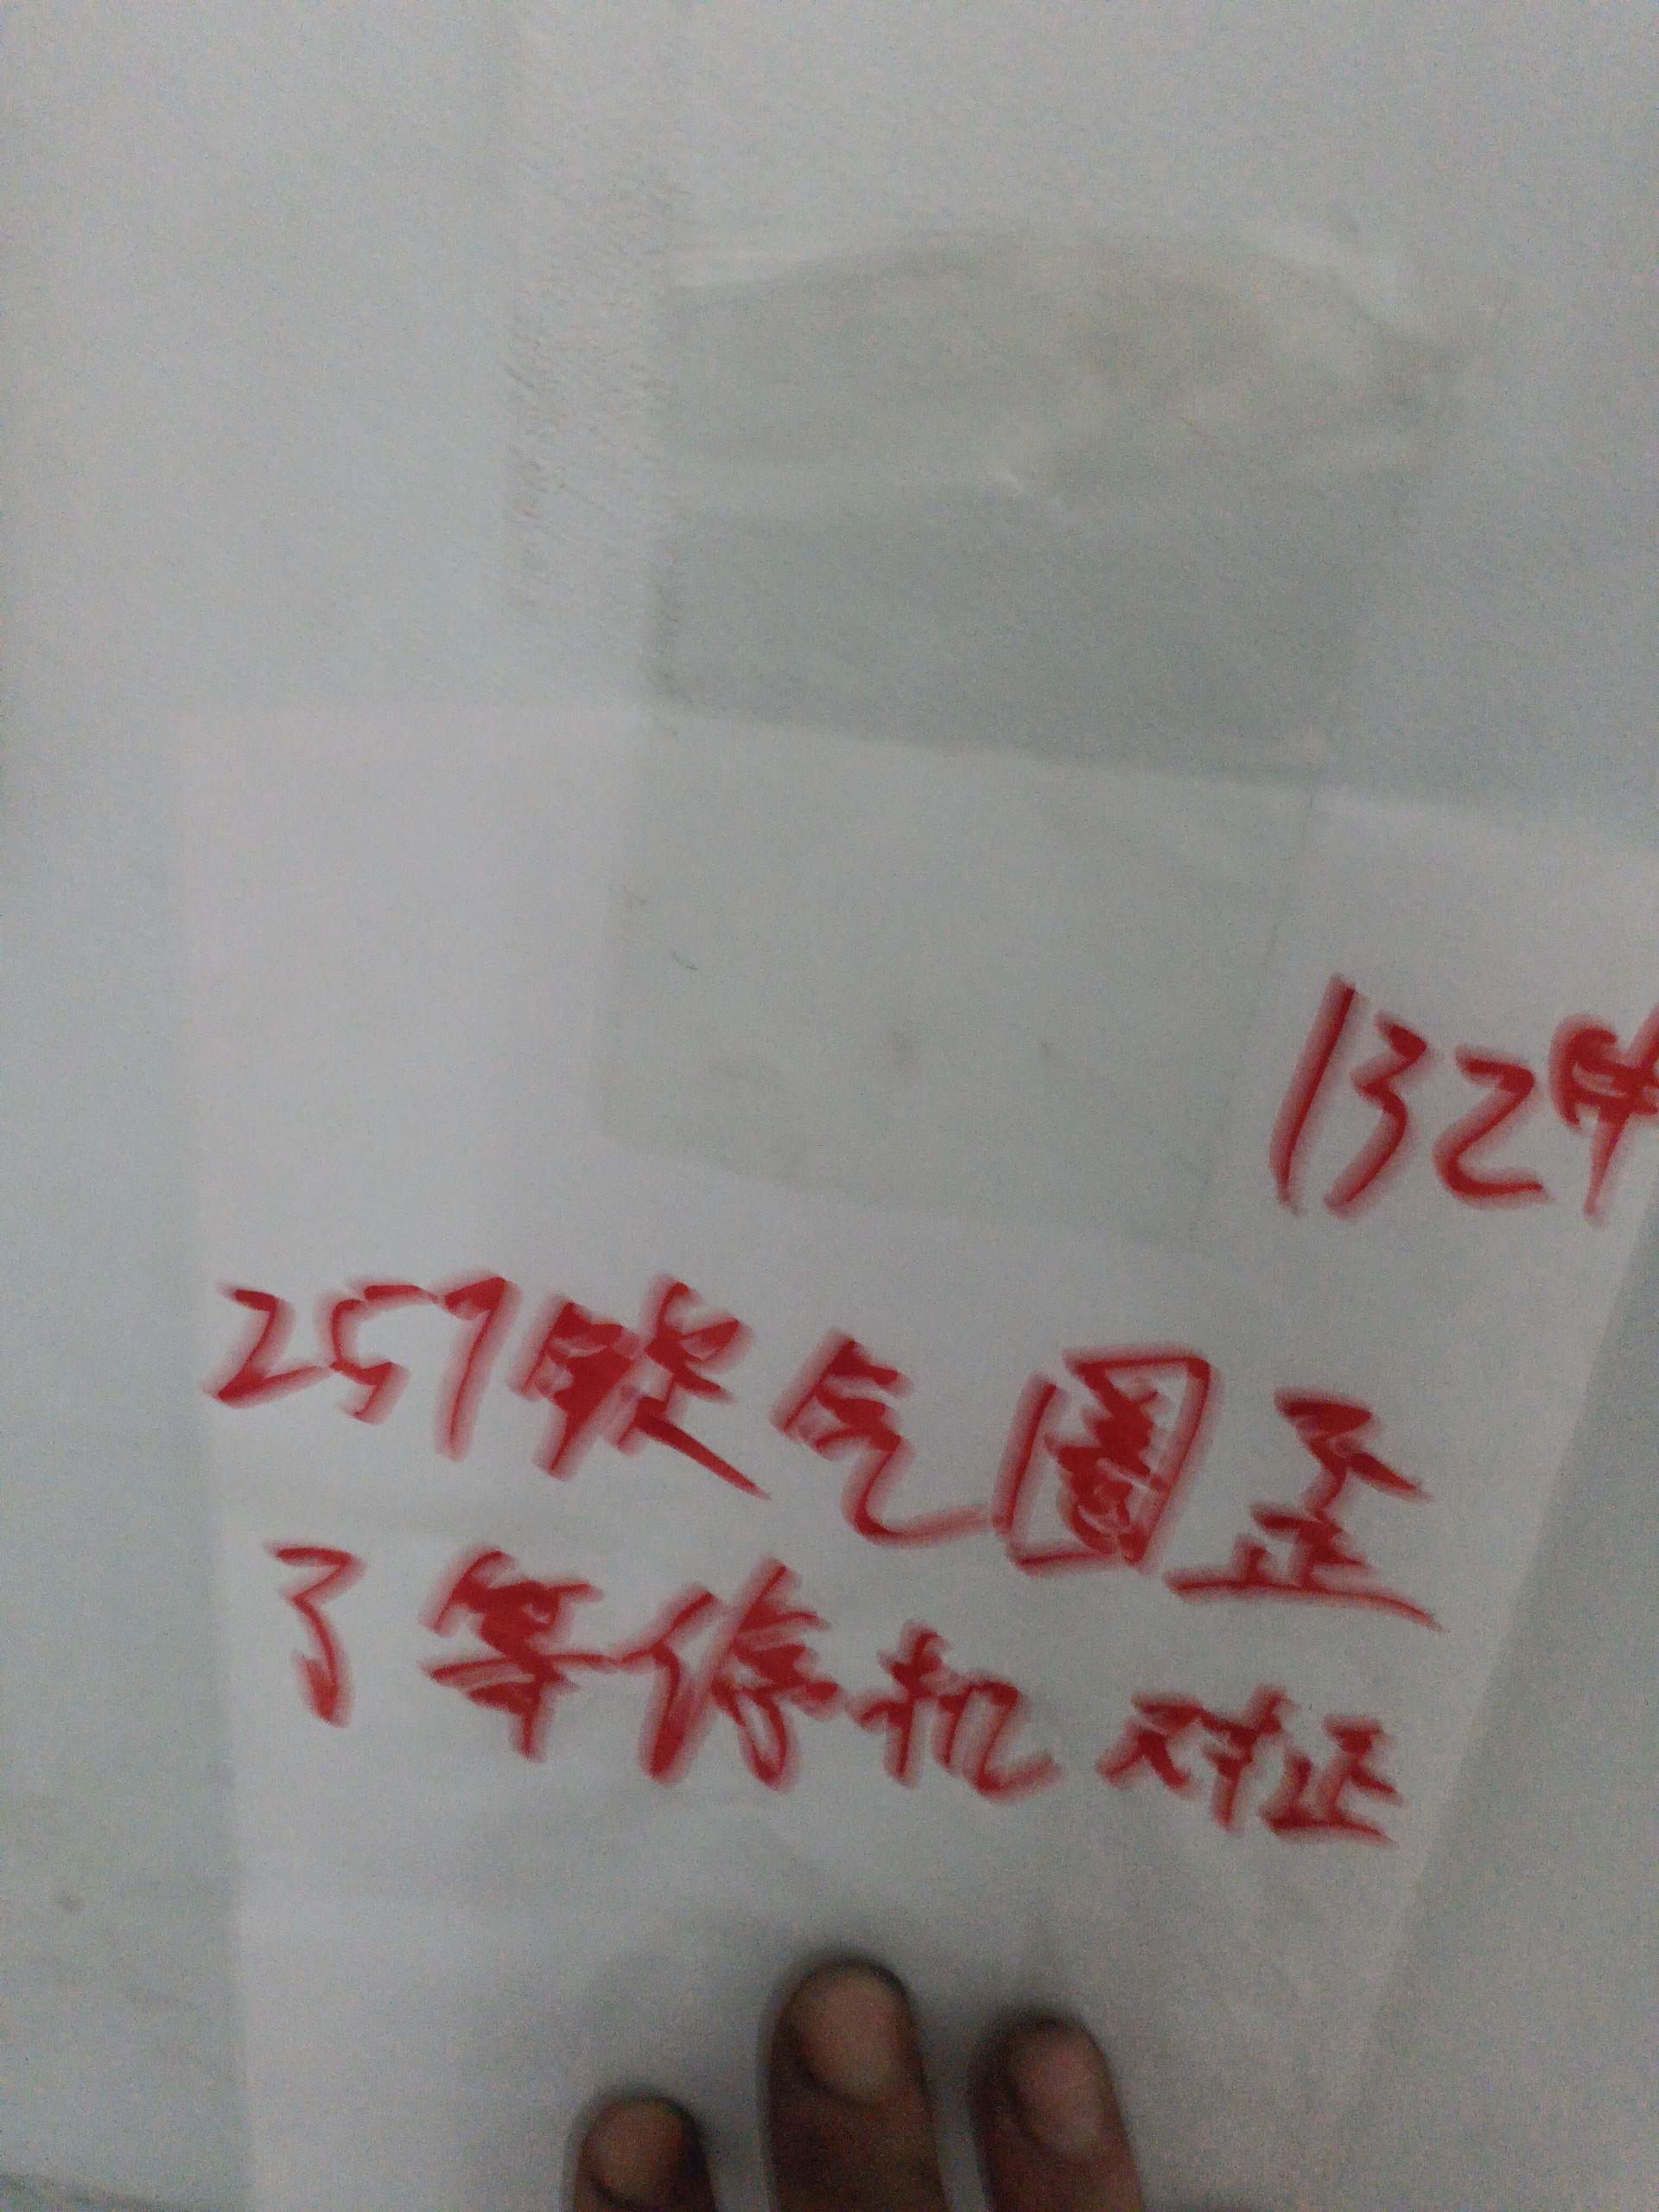 132
257锭气圈歪
了等停机对正